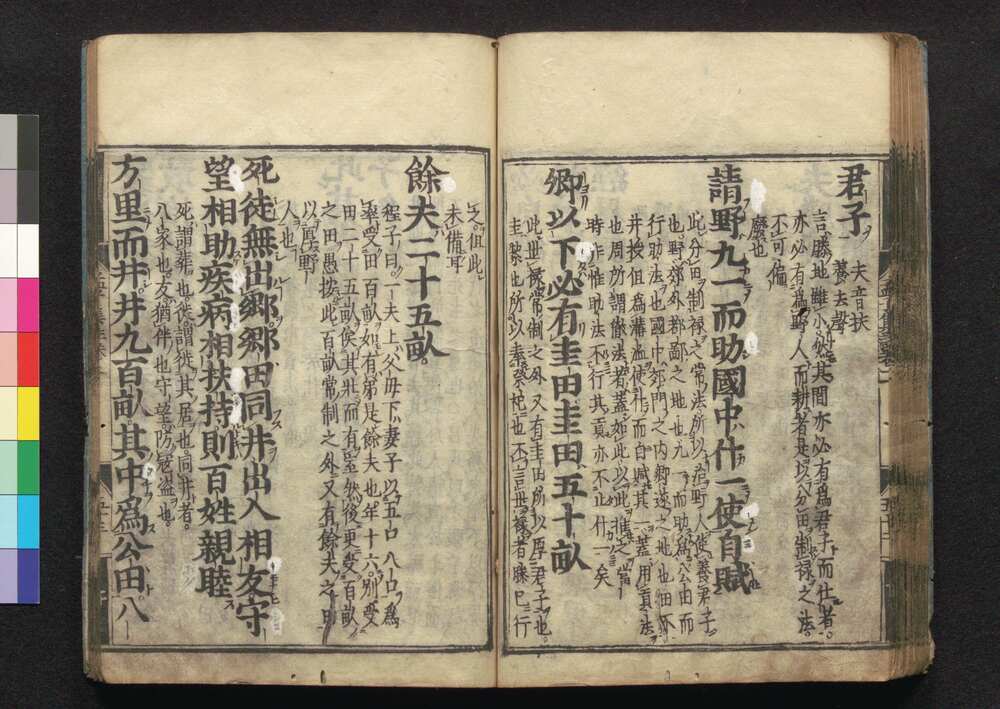 君子
夫音扶
養去聲
言滕地雖小然其間亦必有爲君子而仕者
亦必有爲野人而耕者是以分田制祿之法
不可偏
廢也
請野九一而助國中什一使自賦
此分田制祿之常法所以治野人使養君子
也野郊外都鄙之地也九一而助爲公田而
行助法也國中郊門之內鄉遂之地也田不
井授但爲溝洫使什而自賦其一蓋用貢法
也周所謂徹法者蓋如此以此推之當
時非惟助法不行其貢亦不止什一矣
卿以下必有圭田圭田五十畝
此世祿常制之外又有圭田所以厚君子也
圭潔也所以奉祭祀也不言世祿者滕已行
之但此
未備耳
餘夫二十五畝
程子曰一夫上父母下妻子以五口八口爲
率受田百畝如有弟是餘夫也年十六別受
田二十五畝俟其壯而有室然後更受百畝
之田愚按此百畝常制之外又有餘夫之田
以厚野
人也
死徒無出鄉鄉田同井出入相友守
望相助疾病相扶持則百姓親睦
死謂葬也徙謂徙其居也同井者
八家也友猶伴也守望防寇盜也
方里而井井九百畝其中爲公田八